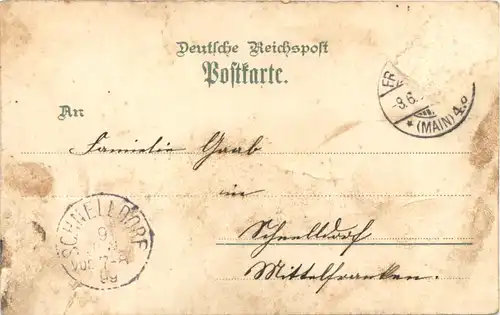 Deutsche Reichspost
Postkarte.
An
Familie Gaab
in
Schnelldorf
Mittelfranken.
FR
-8.6.
*(MAIN) 4.*
SCHNELLDORF
9
VOR
99